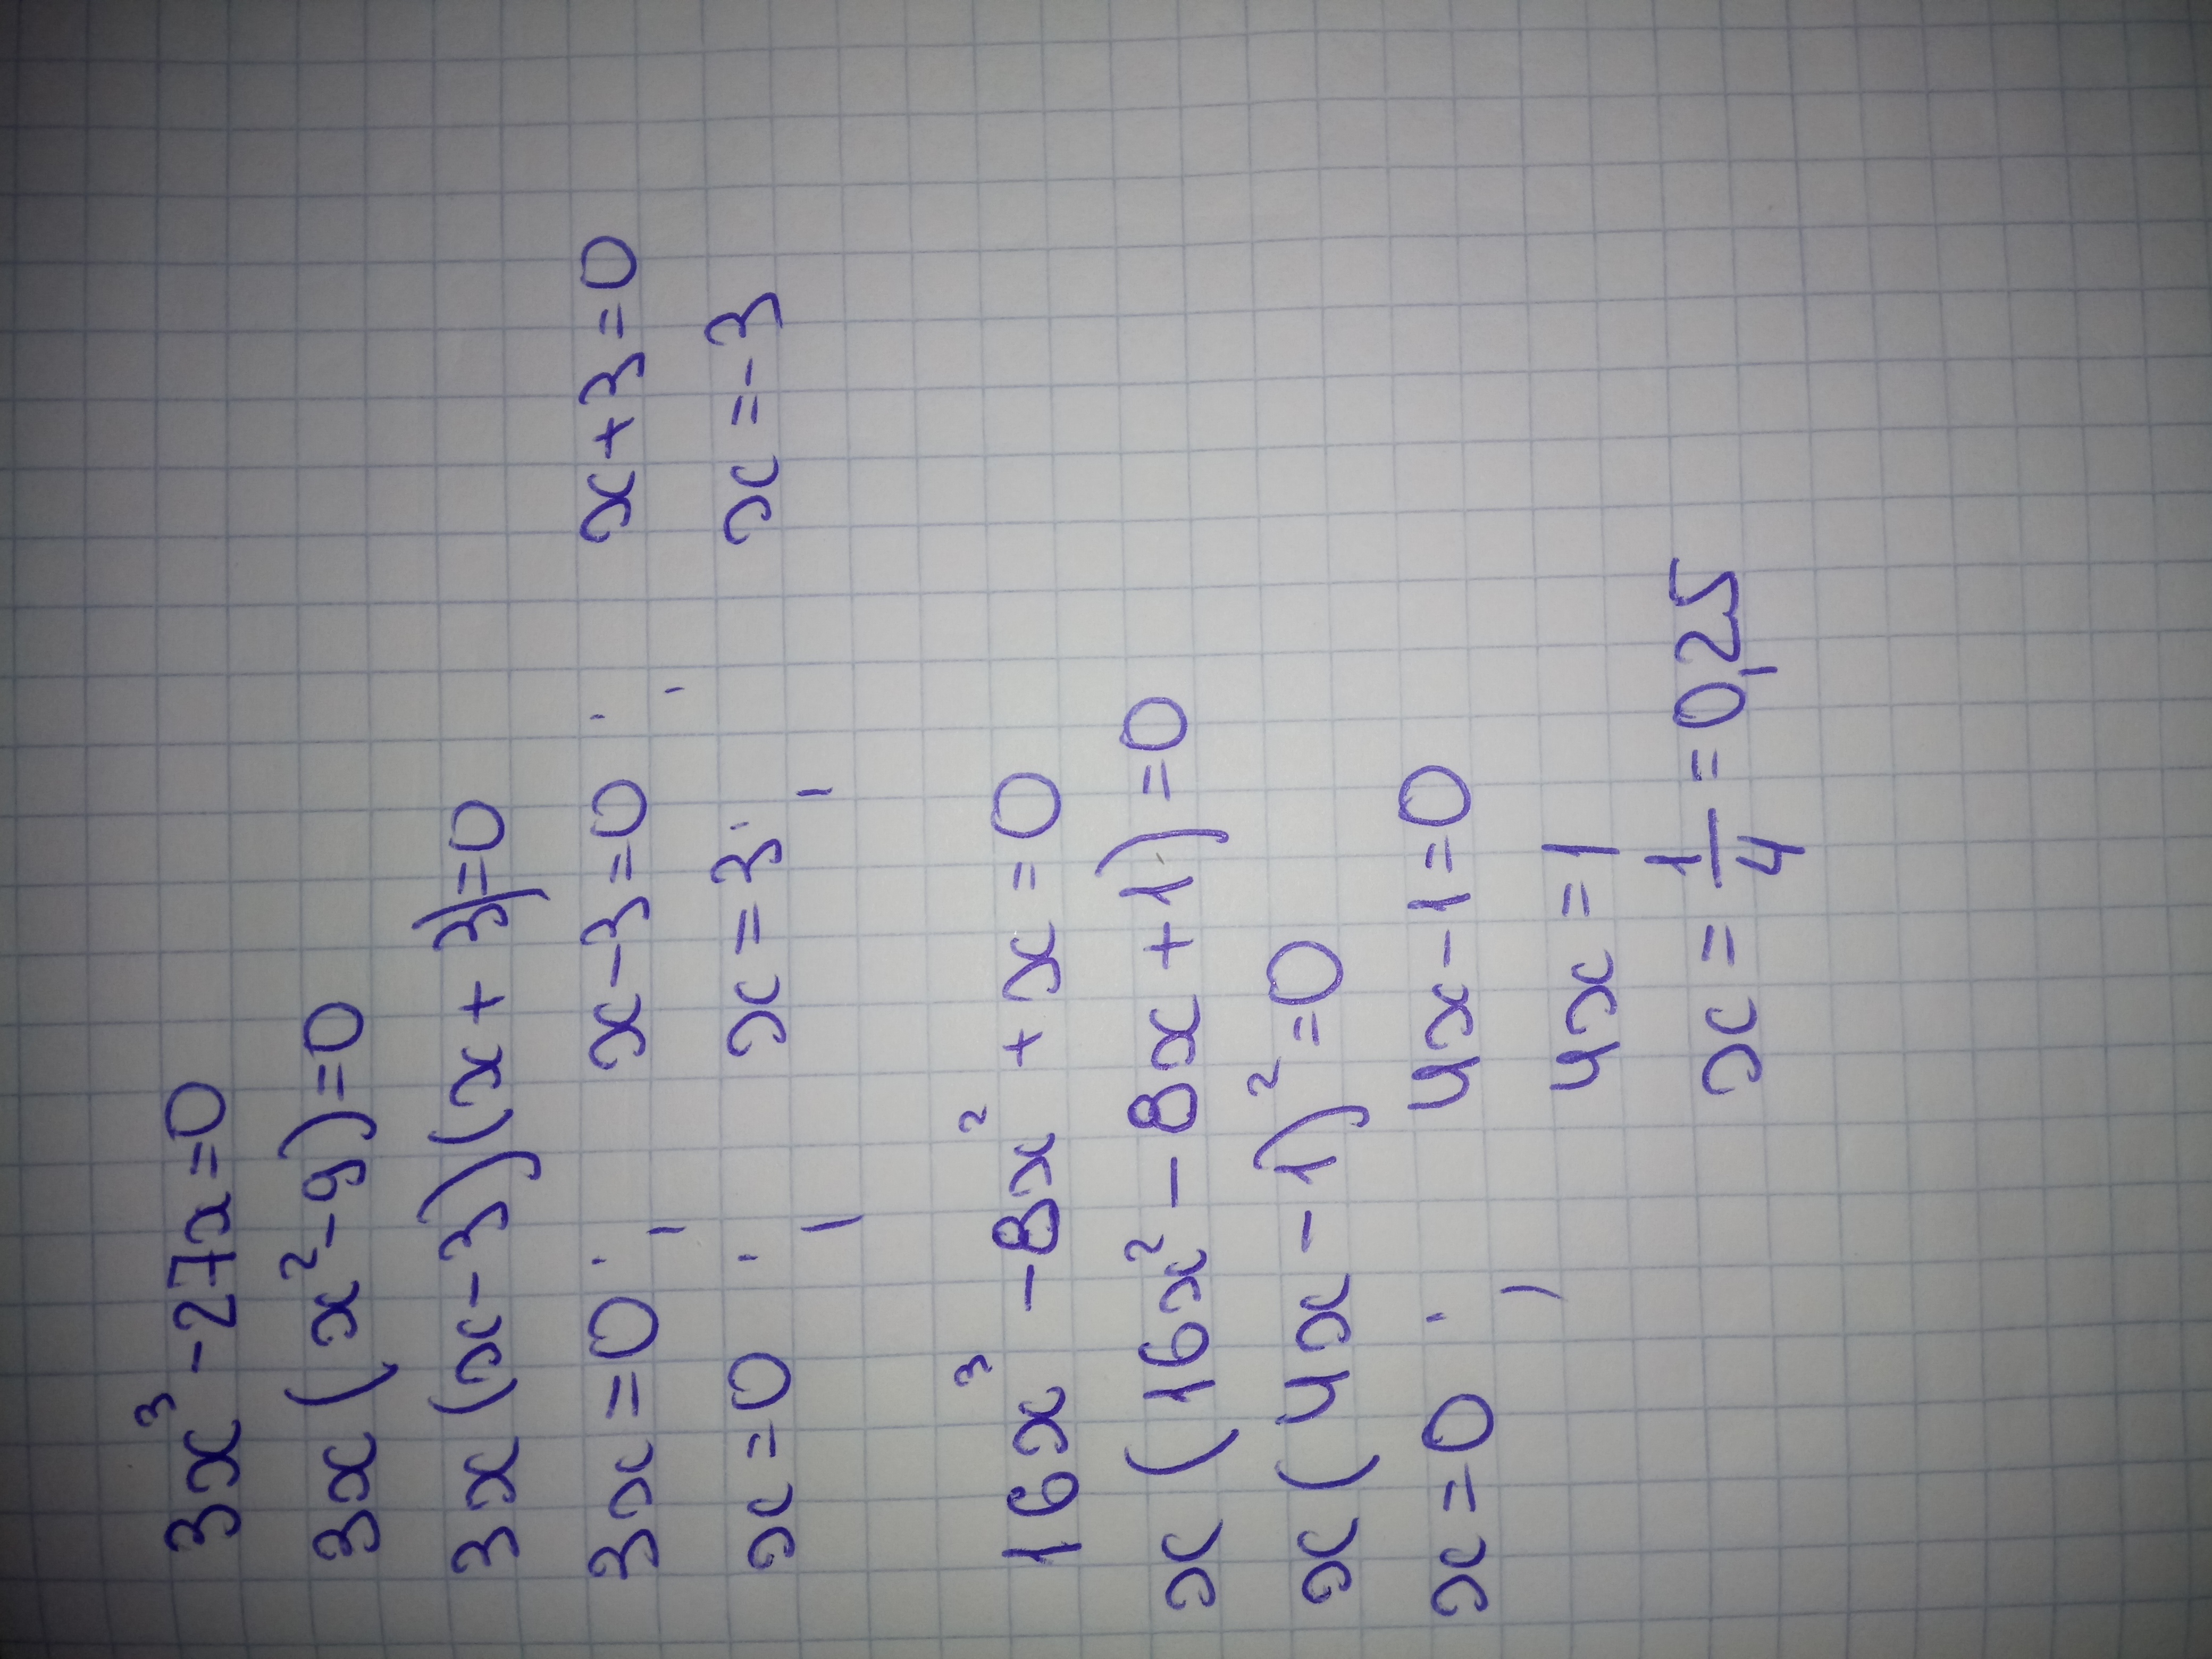 3x³ - 27x = 0
3x (x² - 9) = 0
3x (x - 3) (x + 3) = 0
3x = 0 ; x - 3 = 0 ; x + 3 = 0
x = 0 ; x = 3 ; x = -3
16x³ - 8x² + x = 0
x (16x² - 8x + 1) = 0
x (4x - 1)² = 0
x = 0 ; 4x - 1 = 0
4x = 1
x = 1/4 = 0,25